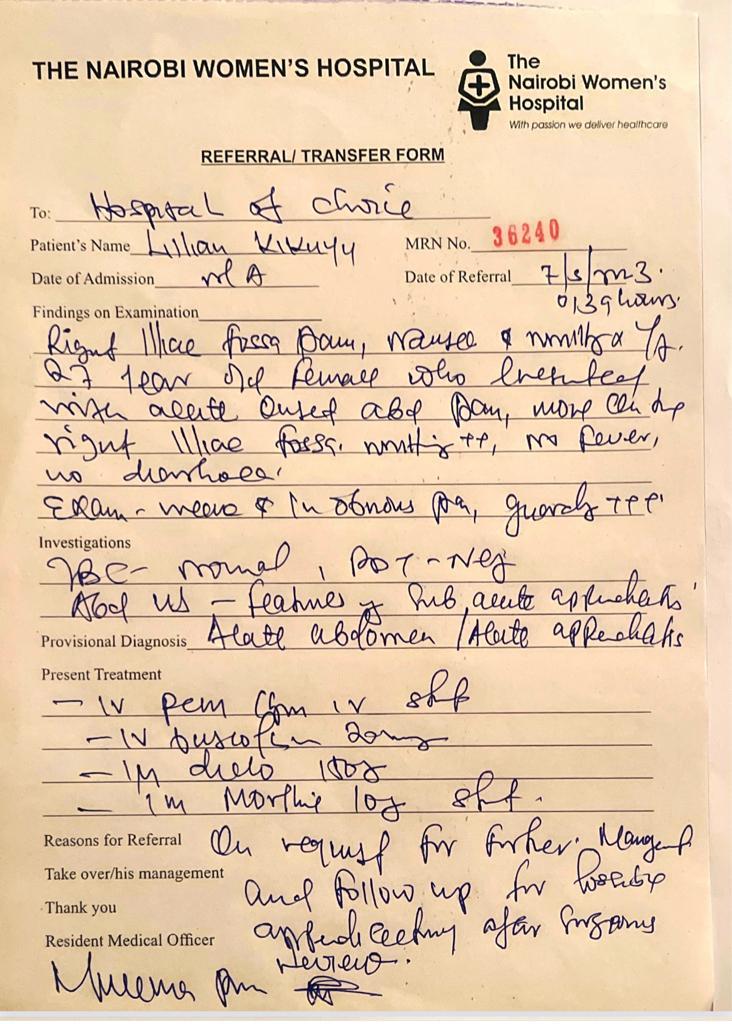 THE NAIROBI WOMEN'S HOSPITAL
The
Nairobi Women's
Hospital
With passion we deliver healthcare
REFERRAL/ TRANSFER FORM
To: Hospital of choice
Patient's Name Lilian Kikuyu MRN No. 36240
Date of Admission N/A Date of Referral
0139 hours.
Findings on Examination
Right Illiac fossa pain, nausea &
27 year old female who presented
with acute onset abd pain, more
right Illiac fossa. vomiting ++, no fever,
no diarrhoea.
Exam - & in obvious pain, guarding +++
Investigations
normal, PDT - Neg
Abd US - features of sub acute appendicitis
Provisional Diagnosis Acute abdomen / Acute appendicitis
Present Treatment
- IV pcm 1gm iv stat
- IV buscopan 20mg
- IM diclo
- im Morphine stat.
Reasons for Referral On request for further
Take over/his management and follow up for possible
Thank you
Resident Medical Officer after surgeons
review.